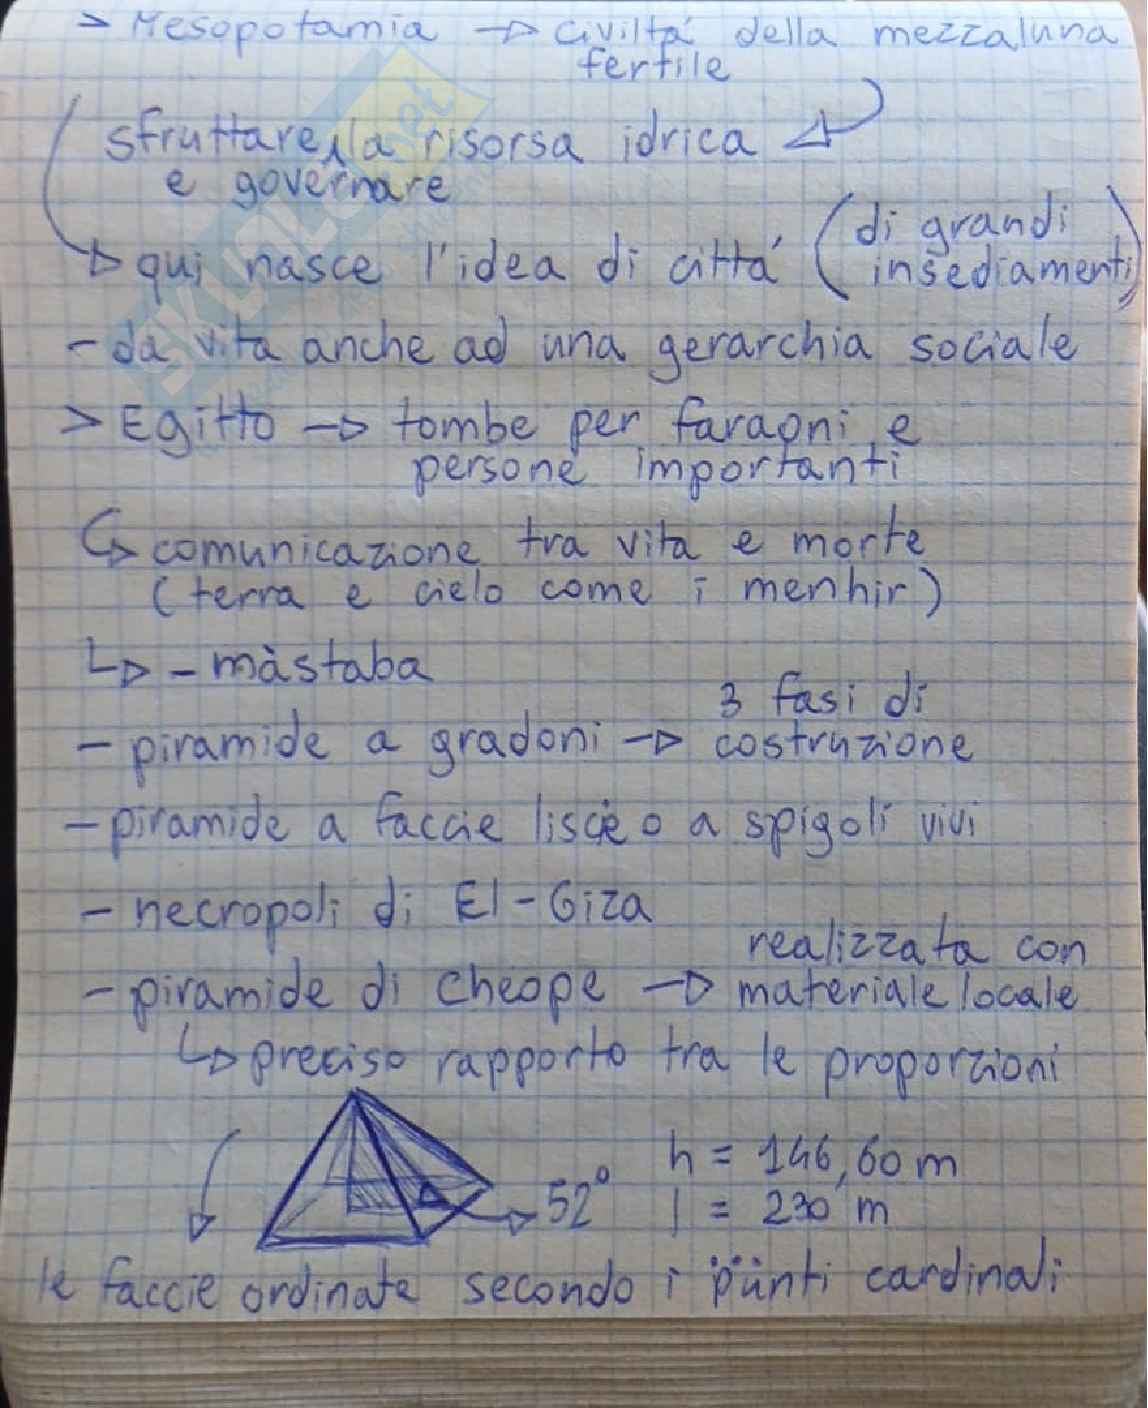 > Mesopotamia → civiltá della mezzaluna
fertile
sfruttare la risorsa idrica
e governare
qui nasce l'idea di cittá (di grandi
insediamenti)
- da vita anche ad una gerarchia sociale
> Egitto → tombe per faraoni e
persone importanti
comunicazione tra vita e morte
(terra e cielo come i menhir)
- màstaba
3 fasi di
- piramide a gradoni → costruzione
- piramide a faccie liscie o a spigoli vivi
- necropoli di El-Giza
realizzata con
- piramide di cheope → materiale locale
preciso rapporto tra le proporzioni
h = 146,60 m
52° l = 230 m
le faccie ordinate secondo i punti cardinali
SKUOLA.net